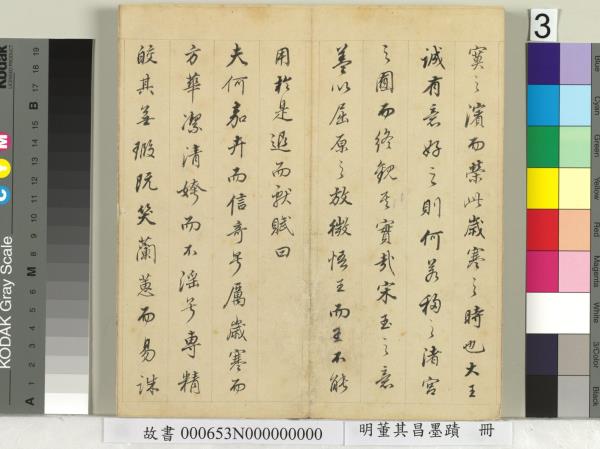 寞之濱而榮此歲寒之時也大王
誠有意好之則何若移之渚宮
之囿而終觀其實哉宋玉之意
蓋以屈原之放微悟王而王不能
用於是退而獻賦曰
夫何嘉卉而信奇兮厲歲寒而
方華潔清姱而不淫兮專精
皎其無瑕既笑蘭蕙而易誅
故書 000653N000000000
明董其昌墨蹟 冊
3
Kodak
KODAK Gray Scale
C Y M
A 1 2 3 4 5 6 M 8 9 10 11 12 13 14 15 B 17 18 19
Blue
Cyan
Green
Yellow
Red
Magenta
White
3/Color
Black